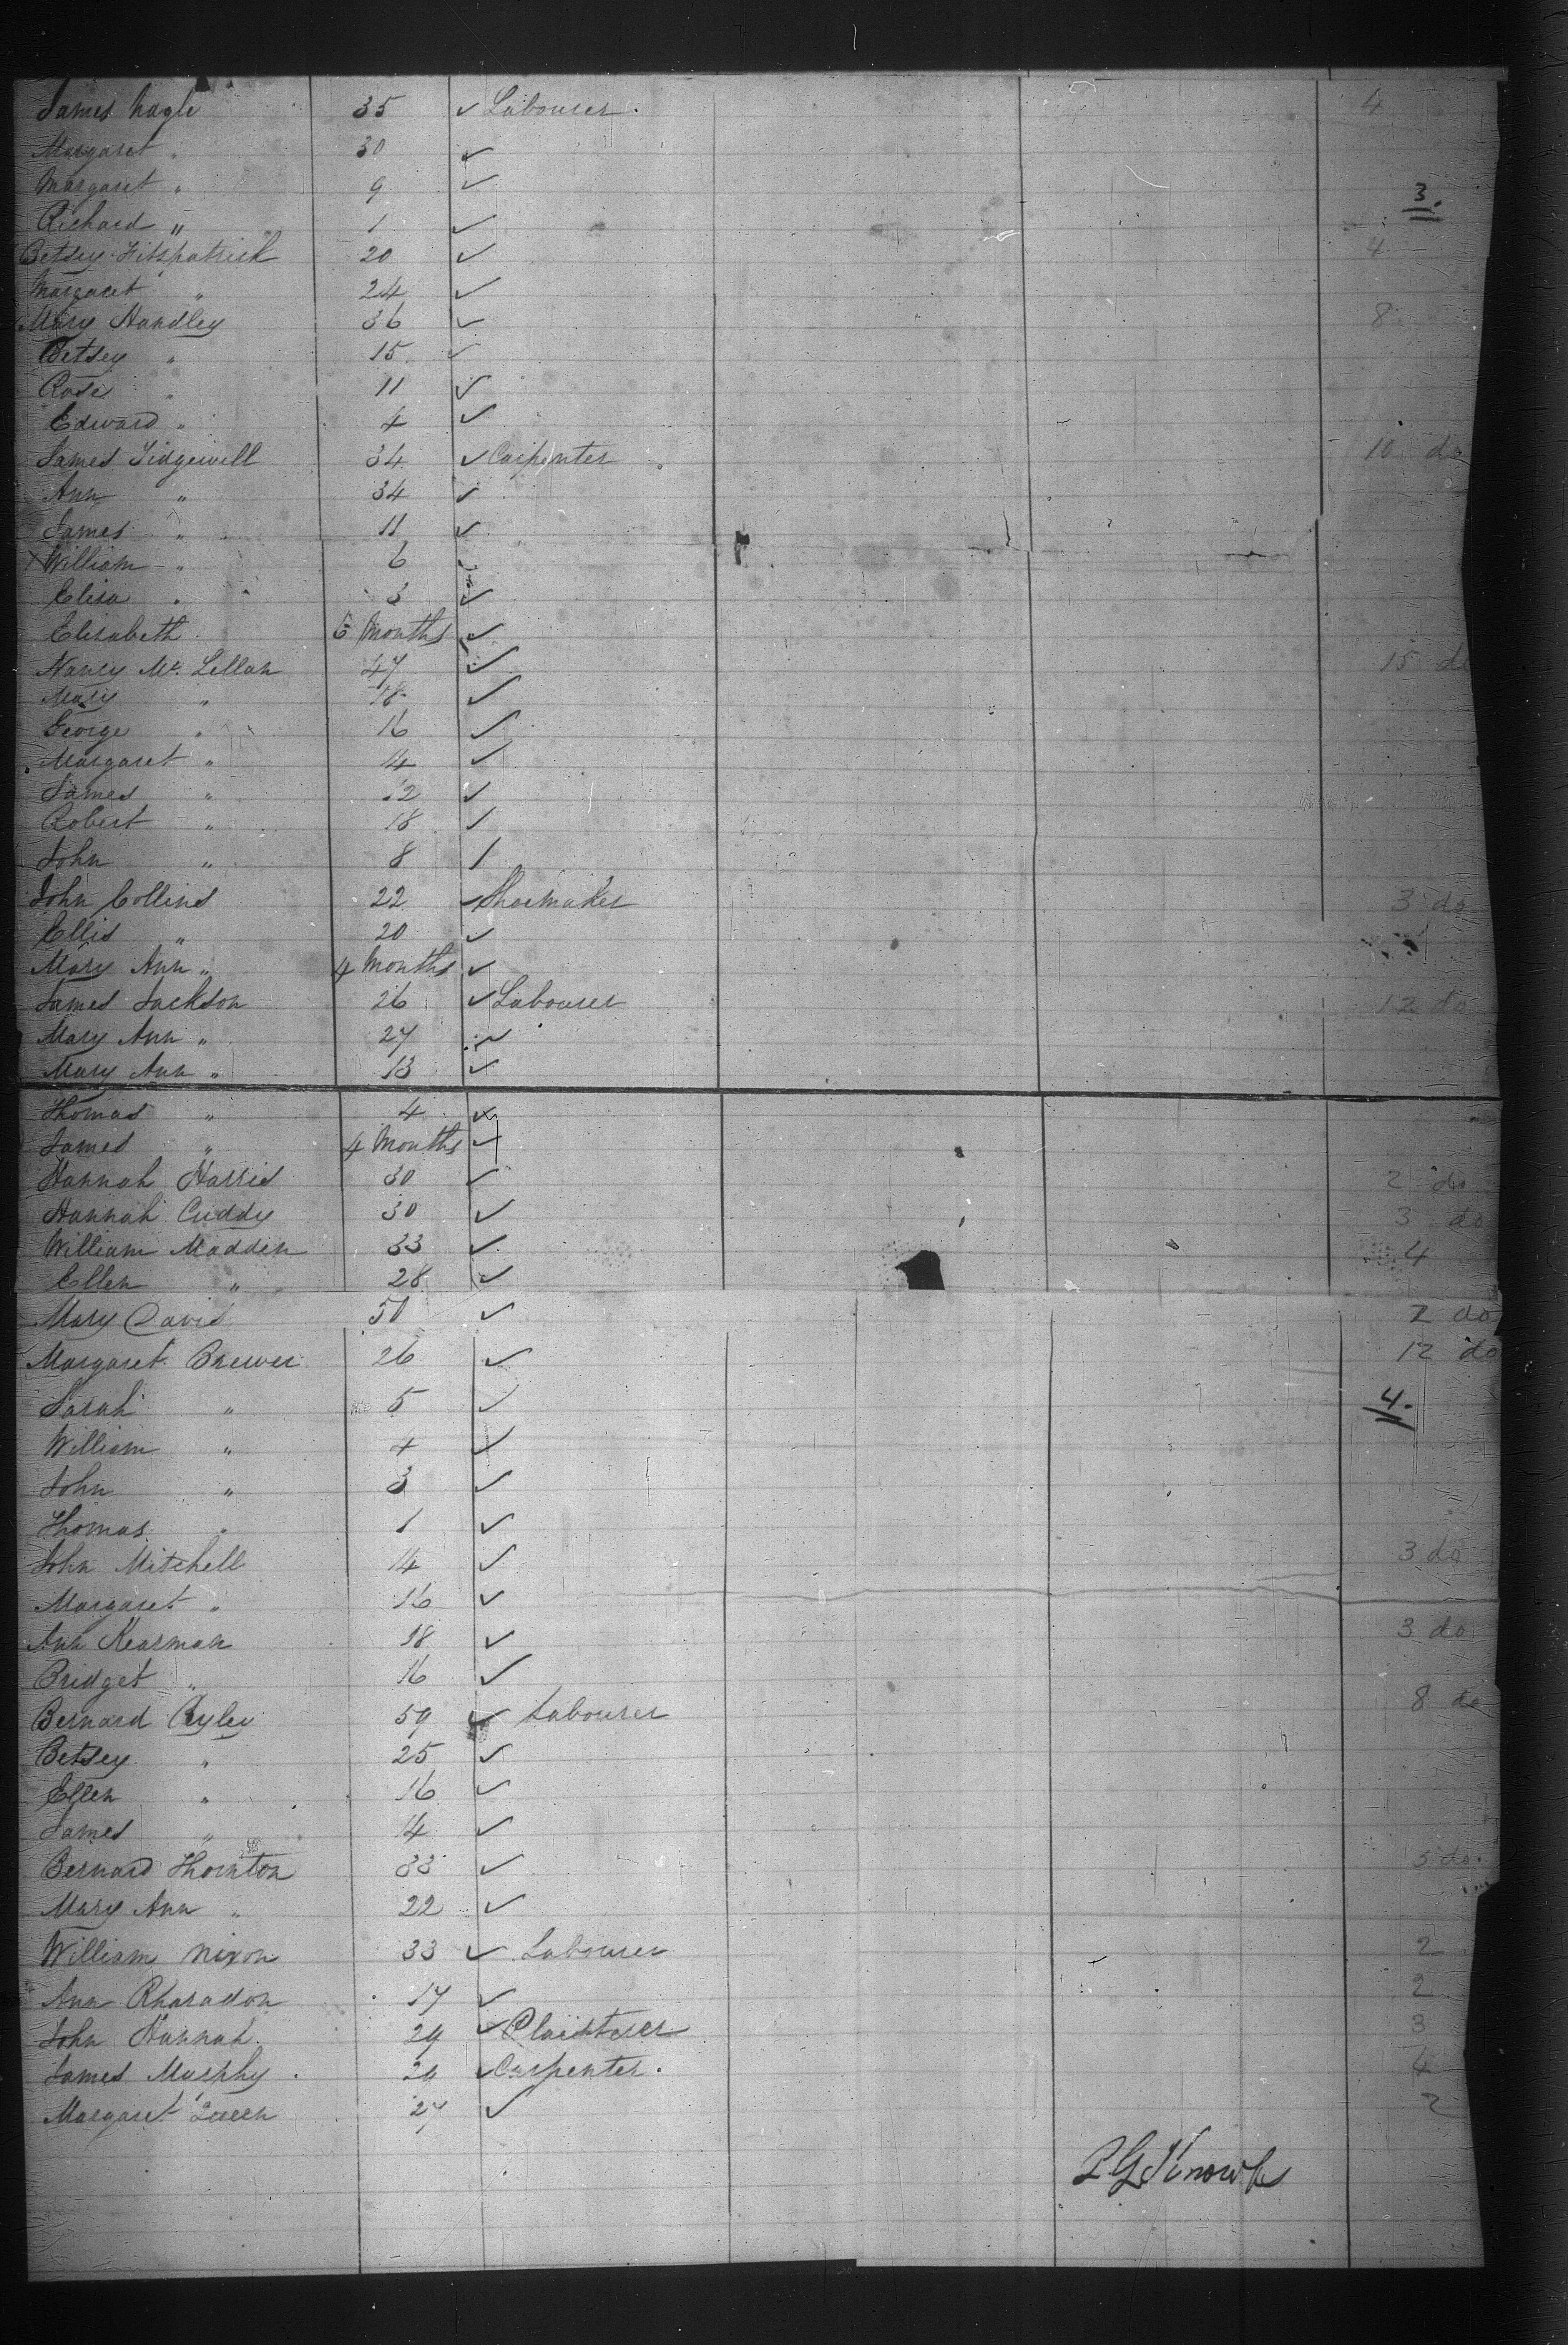 James Nagle 35 ✓ Labourer. 4
Margaret " 30 ✓
Margaret " 9 ✓
3.
Richard " 1 ✓
Betsey Fitspatrick 20 ✓ 4
Margaret " 24 ✓
Mary Handley 36 ✓ 8
Betsey " 15 ✓
Rose " 11 ✓
Edward " 4 ✓
James Tidgewell 34 ✓ Carpenter 10 do
Ann " 34 ✓
James " 11 ✓
William " 6 ✓
Elisa " 3 ✓
Elisabeth 6 Months ✓
Nancy Mc. Lellan 47 ✓ 15 do
Mary " 18 ✓
George " 16 ✓
Margaret " 4 ✓
James " 12 ✓
Robert " 18 ✓
John " 8 ✓
John Collins 22 ✓ Shoemaker 3 do
Ellis " 20 ✓
Mary Ann " 4 Months ✓
James Jackson 26 ✓ Labourer 12 do
Mary Ann " 27 ✓
Mary Ann " 13 ✓
Thomas " 4 ✓
James " 4 Months ✓
Hannah Harris 30 ✓ 2 do
Hannah Cuddy 30 ✓ 3 do
William Madden 33 ✓ 4
Ellen " 28 ✓
Mary Davis 50 ✓ 2 do
Margaret Brewer 26 ✓ 12 do
Sarah " 5 ✓ 4.
William " 4 ✓
John " 3 ✓
Thomas " 1 ✓
John Mitchell 14 ✓ 3 do
Margaret " 16 ✓
Ann Kearman 18 ✓ 3 do
Bridget " 16 ✓
Bernard Ryley 59 ✓ Labourer 8 do
Betsey " 25 ✓
Ellen " 16 ✓
James " 14 ✓
Bernard Thornton 33 ✓ 5 do.
Mary Ann " 22 ✓
William Nixon 33 ✓ Labourer 2
Ann Rharadon 17 ✓ 2
John Hannah 29 ✓ Plaisterer 3
James Murphy 29 ✓ Carpenter. 4
Margaret Queen 27 ✓ 2